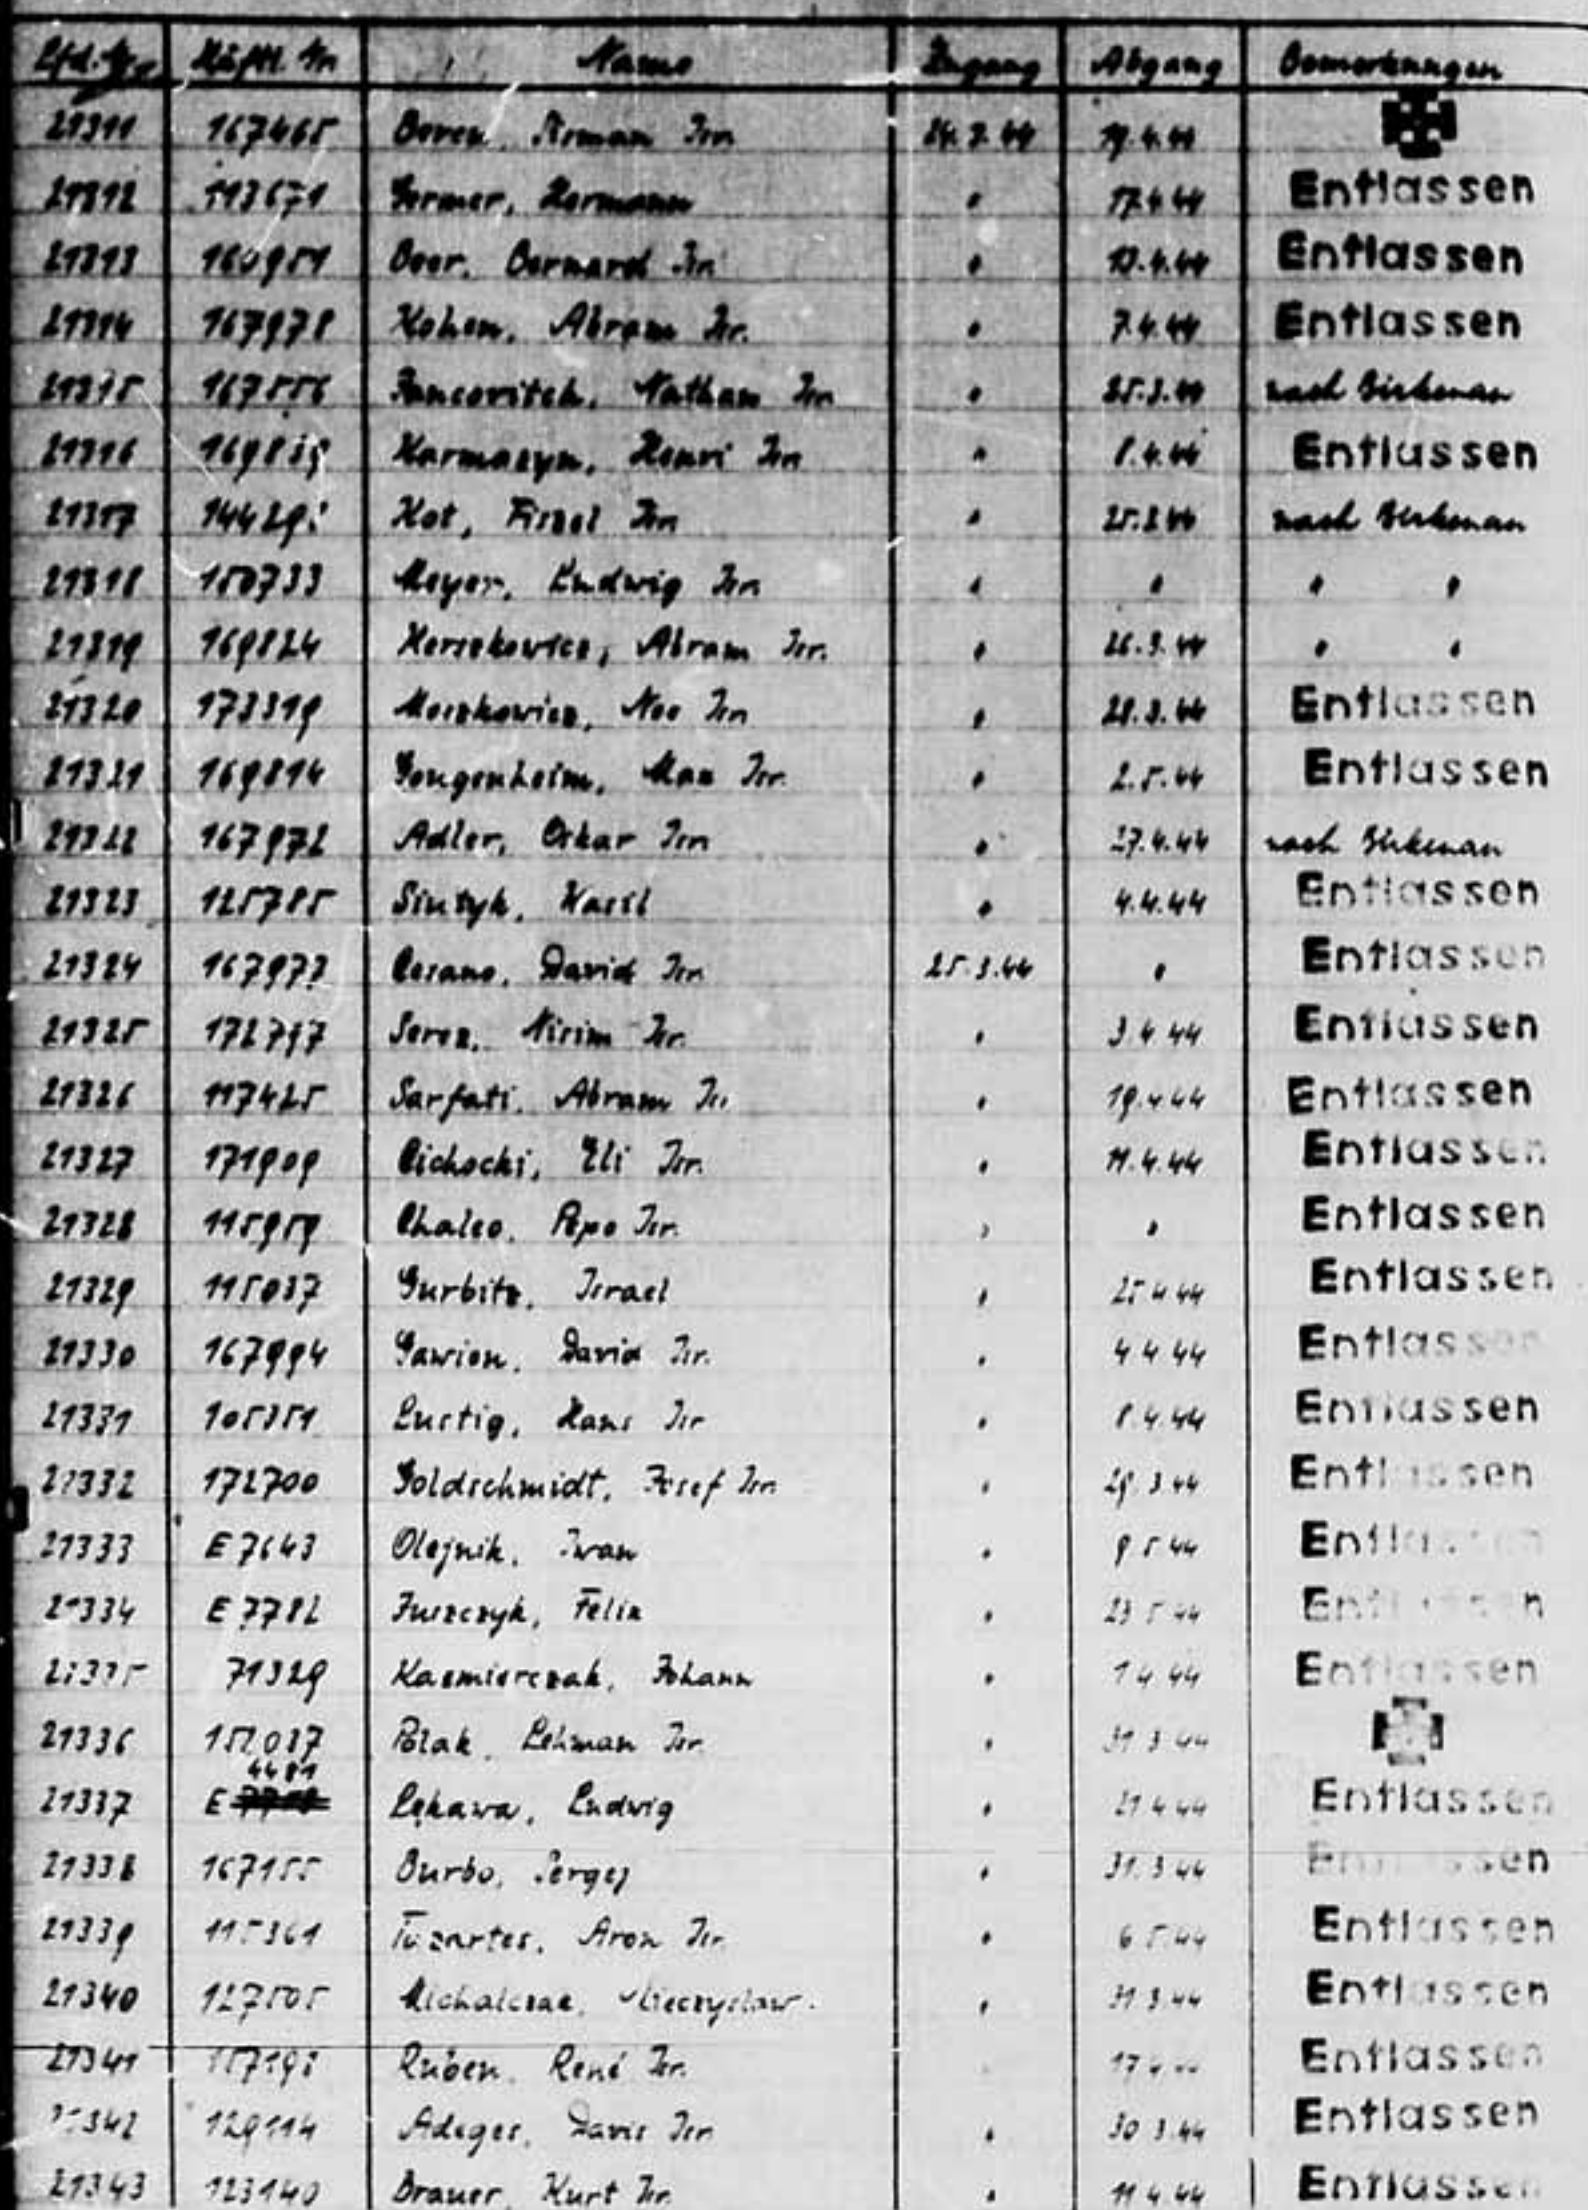 Lfd. Nr. Häftl. Nr Name Zugang Abgang Bemerkungen
21311 167465 Roman Isr. 24.3.44 19.4.44
21312 113671 Germer, Hermann " 17.4.44 Entlassen
21313 Beer, Bernard Isr. " Entlassen
21314 167978 Kohen, Abram Isr. " 7.4.44 Entlassen
21315 167556 Nathan Isr. " 25.3.44 nach Birkenau
21316 Karmazyn, Henri Isr. " 8.4.44 Entlassen
21317 Kot, Fiszel Isr. " 25.3.44 nach Birkenau
21318 150733 Meyer, Ludwig Isr. " " " "
21319 169824 Herszkowicz, Abram Isr. " 26.3.44 " "
21320 173319 Moszkowicz, Noe Isr. " 28.3.44 Entlassen
21321 169814 Gougenheim, Max Isr. " 2.5.44 Entlassen
21322 167972 Adler, Oskar Isr. " 27.4.44 nach Birkenau
21323 125785 Sintyk, Wasil " 4.4.44 Entlassen
21324 167973 Cesano, David Isr. 25.3.44 " Entlassen
21325 172797 Nisim Isr. " 3.4.44 Entlassen
21326 117425 Sarfati, Abram Isr. " 19.4.44 Entlassen
21327 171909 Cichocki, Eli Isr. " 11.4.44 Entlassen
21328 115959 Chaleo, Pepo Isr. " " Entlassen
21329 115037 Gurbitz, Israel " 25.4.44 Entlassen
21330 167994 Gawion, David Isr. " 4.4.44 Entlassen
21331 105351 Lustig, Hans Isr. " 8.4.44 Entlassen
21332 172700 Goldschmidt, Josef Isr. " 29.3.44 Entlassen
21333 E 7643 Olejnik, Iwan " 9.5.44 Entlassen
21334 E 7782 Juszczyk, Felix " 23.5.44 Entlassen
21335 71329 Kazmierczak, Johann " 1.4.44 Entlassen
21336 152037 Polak, Lehman Isr. " 31.3.44
4481
21337 E Lękawa, Ludwig " 21.4.44 Entlassen
21338 167155 Burbo, Sergej " 31.3.44 Entlassen
21339 115361 Aron Isr. " 6.5.44 Entlassen
21340 127505 Michalczac, Mieczyslaw " 31.3.44 Entlassen
21341 Ruben, René Isr. Entlassen
21342 129114 Adeges, Isr. " 30.3.44 Entlassen
21343 123140 Brauer, Kurt Isr. " 11.4.44 Entlassen